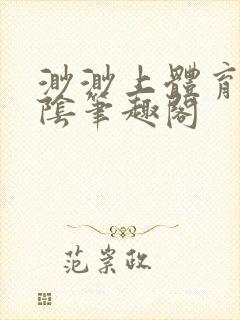 渺渺上體育
陰筆趣閣
范崇政